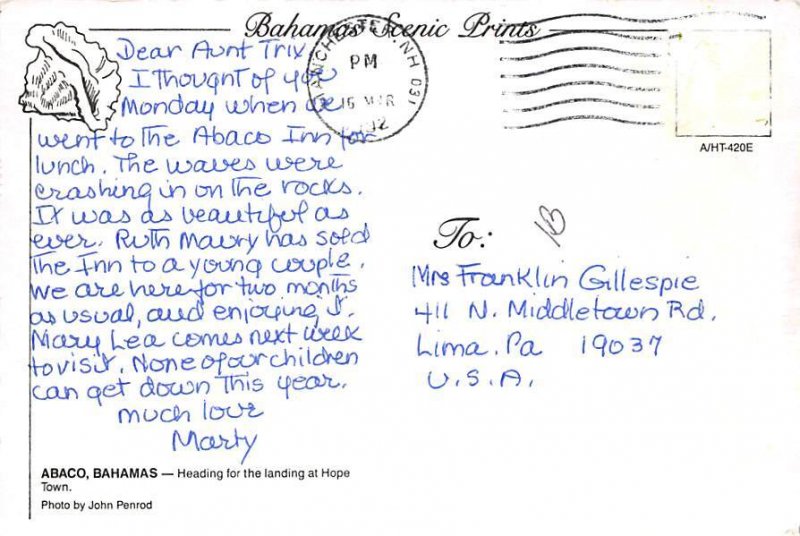 Bahamas Scenic Prints
Dear Aunt Trix,
I thought of you
Monday when we
went to the Abaco Inn for
lunch. The waves were
crashing in on the rocks.
It was as beautiful as
ever. Ruth Maury has sold
the Inn to a young couple.
We are here for two months
as usual, and enjoying it.
Mary Lea comes next week
to visit. None of our children
can get down this year.
much love
Marty
ABACO, BAHAMAS — Heading for the landing at Hope
Town.
Photo by John Penrod
MANCHESTER, NH 031
PM
16 MAR
A/HT-420E
To:
Mrs Franklin Gillespie
411 N. Middletown Rd.
Lima, Pa 19037
U.S.A.